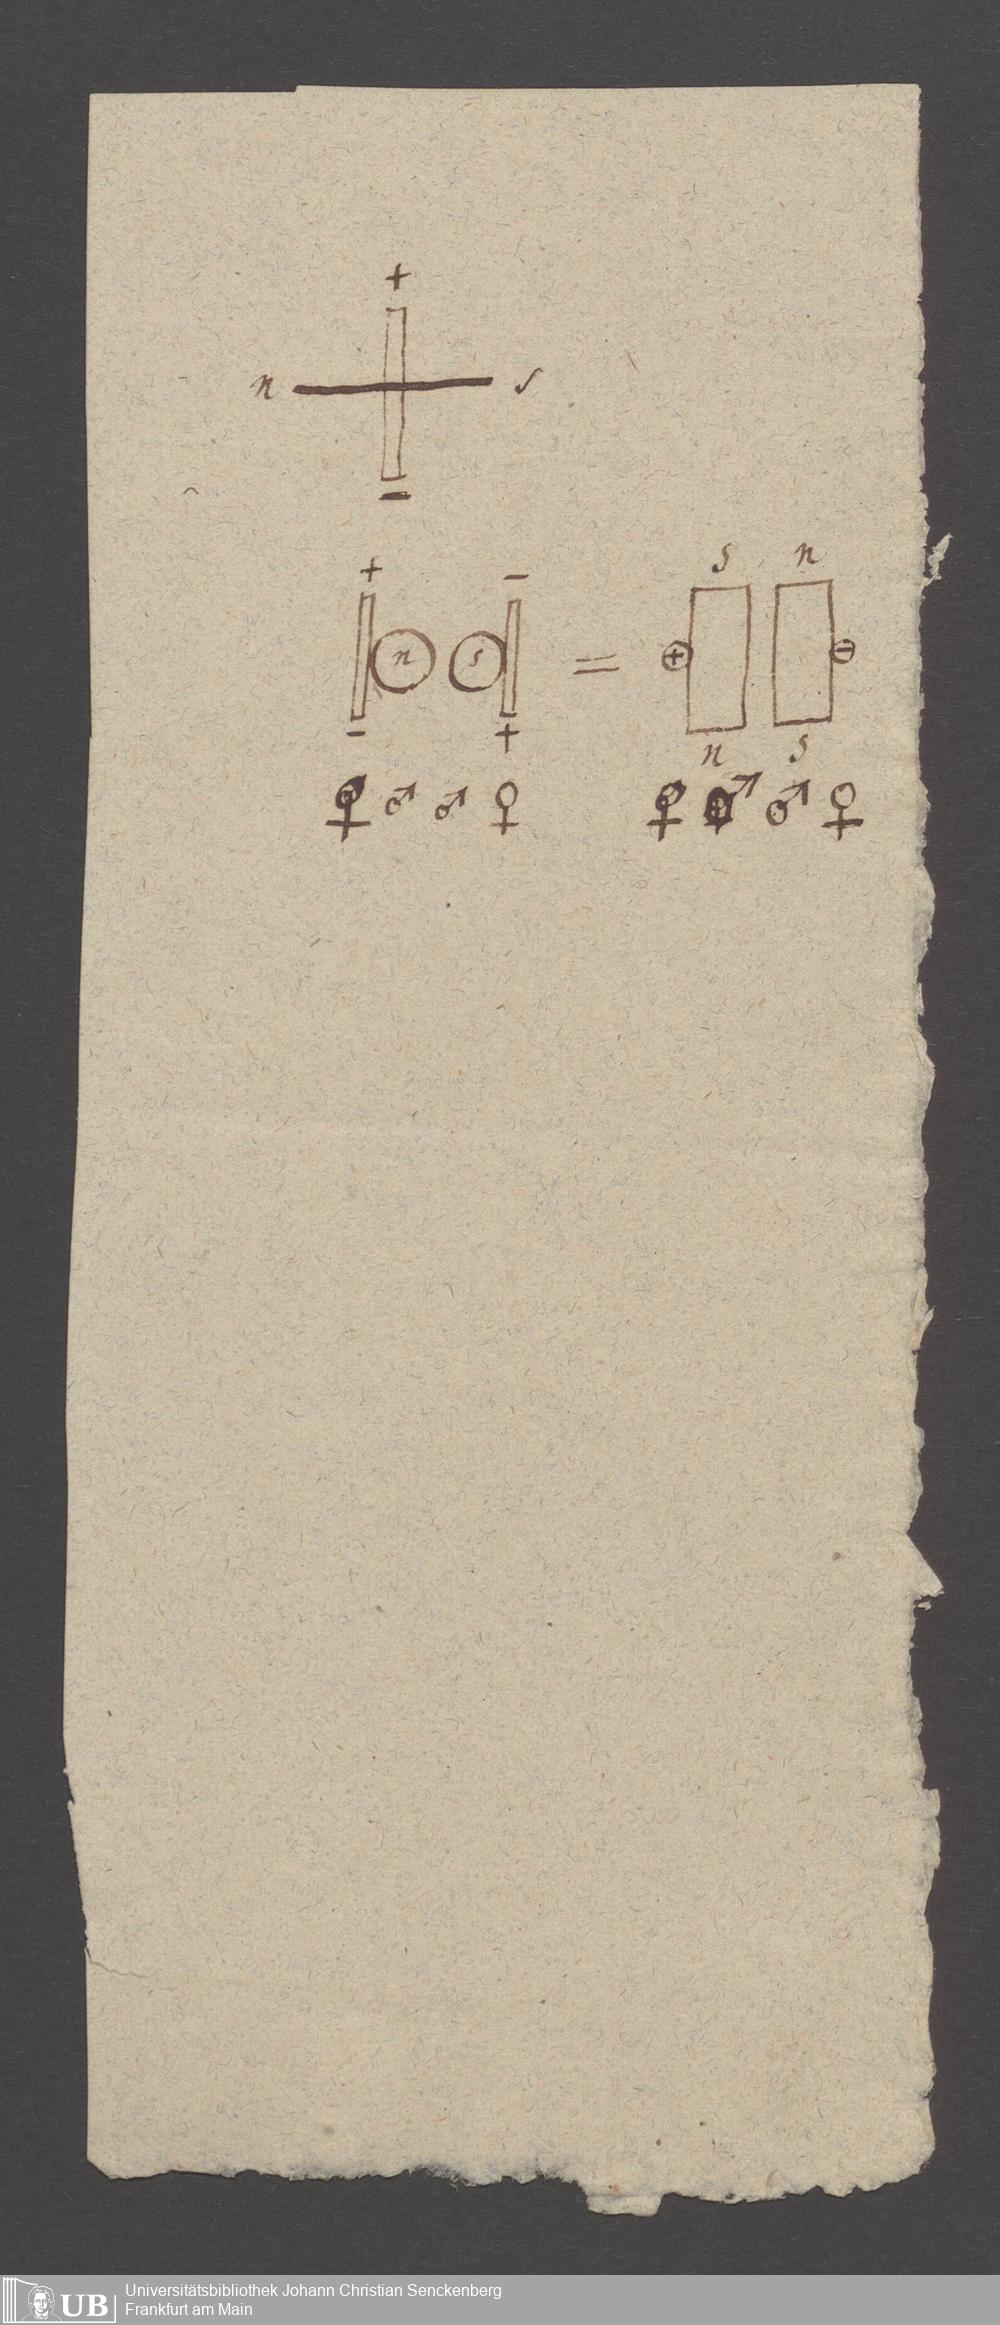 +
n s
−
+ − s n
n s = + −
− + n s
♀ ♂ ♂ ♀ ♀ ♂ ♂ ♀
UB Universitätsbibliothek Johann Christian Senckenberg
Frankfurt am Main